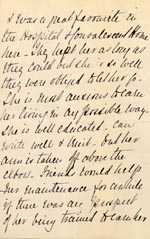 & was a great favourite in
the Hospital & Convalescent Home
here. They kept her as long as
they could but she is so well
they were obliged to let her go.
She is most anxious to earn
her living in any possible way.
She is well educated. can
write well & knit. but her
arm is taken off above the
elbow. Friends would help
her maintenance for a while
if there was any prospect
of her being trained to earn her